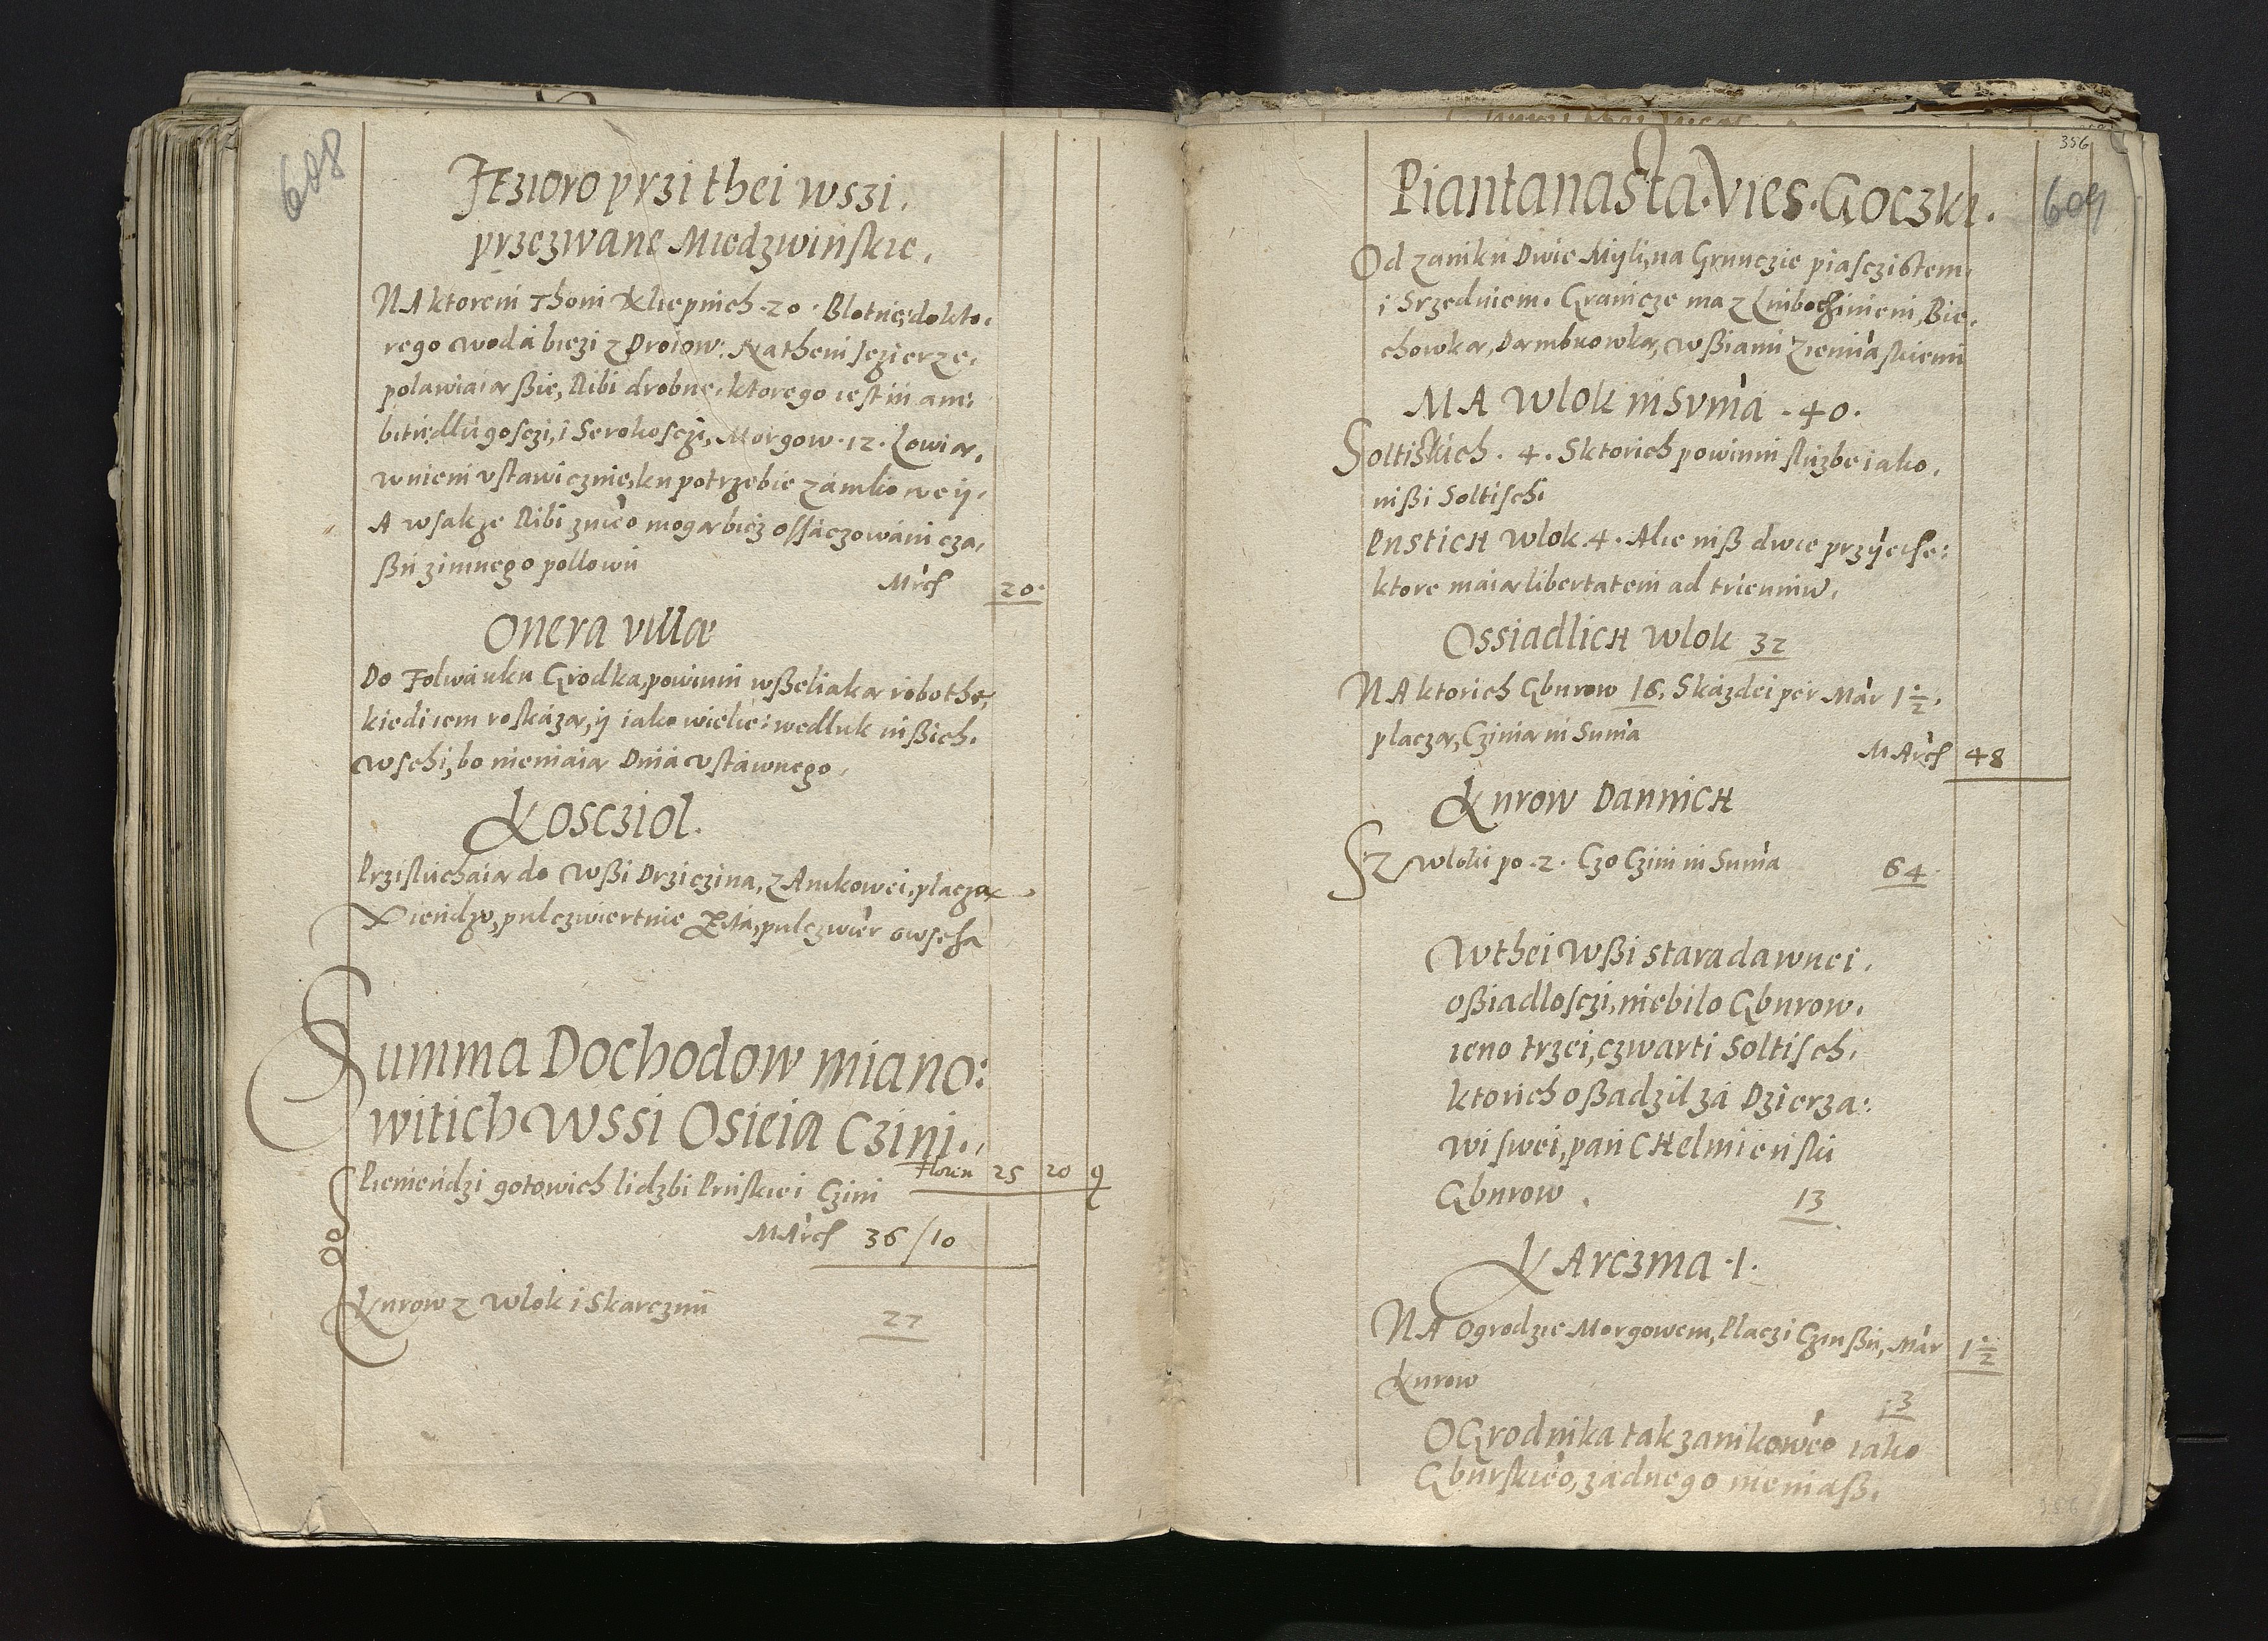 608
JEzioro przi thei wszi.
przezwane Miedzwinskie.
NA ktorem Thoni Kliepnich · 20 · Blotnie, do kto,
rego woda biezi z Droiow: Na them Jezierze,
polawiaia ßie, Ribi drobne, ktorego iest in am,
bitu dlugosczi, i Serokosczi, Morgow · 12 · Lowia,
w niem ustawicznie, ku potrzebie zamkoweÿ,
A wsakze Ribi znie̾o moga bicz ossaczowani cza,
ßu zimnego pollowu
Mrcſ 20
Onera villæ
Do Folwarku Grodka, powinni wßeliaka robothe,
kiedi iem roskaza, ÿ iako wiele: wedluk inßich.
wschi, bo niemaia Dnia ustawnego,
Koscziol.
Przisluchaia do Wßi Drziczina, zAmkowei, placza
Xiendzu, pul czwiertnie Zita, pul czwier owscha
Summa Dochodow miano:
witich Wssi Osieia Czini.
Floren 25 20 9
Pieniendzi gotowich lidzbi Pruskiei Czini
MArcſ 36/10
Kurow z Wlok i Skarczmi
27
356
609
Piantanasta · Vies · Goczki.
Od zamku Dwie Myli, na Grunczie piasczistem,
i Srzedniem. Granicze ma z Lubochiniem, Bie,
chowka, Dambuowka, wßiami ziemiaskiemi
MA Wlok in Suma · 40 ·
Soltiskich · 4 · Sktorich powinni sluzbe iako,
inßi Soltischi
Pustich Wlok · 4 · Alie niß dwie przÿese:
ktore maia libertatem ad trienniu,
Ossiadlich Wlok 32
NA ktorich Gburow 16, Skazdei per Mar 1½.
placza, Czinia in Suma
MArcſ 48
Kurow Dannich
Sz Wloki po · 2 · Czo Czini in Suma 64
W thei Wßi staradawnei.
oßiadlosczi, niebilo Gburow.
ieno trzei, czwarti Soltisch.
ktorich oßadzil za Dzierza:
wi swei, pan CHelmienski
Gburow . 13
KArczma · 1 ·
NA Ogrodzie Morgowem, Placzi Czinßu, Mar 1½
Kurow
13
OGrodnika tak zamkowe̾o iako
Gburskie̾o, zadnego niemaß.